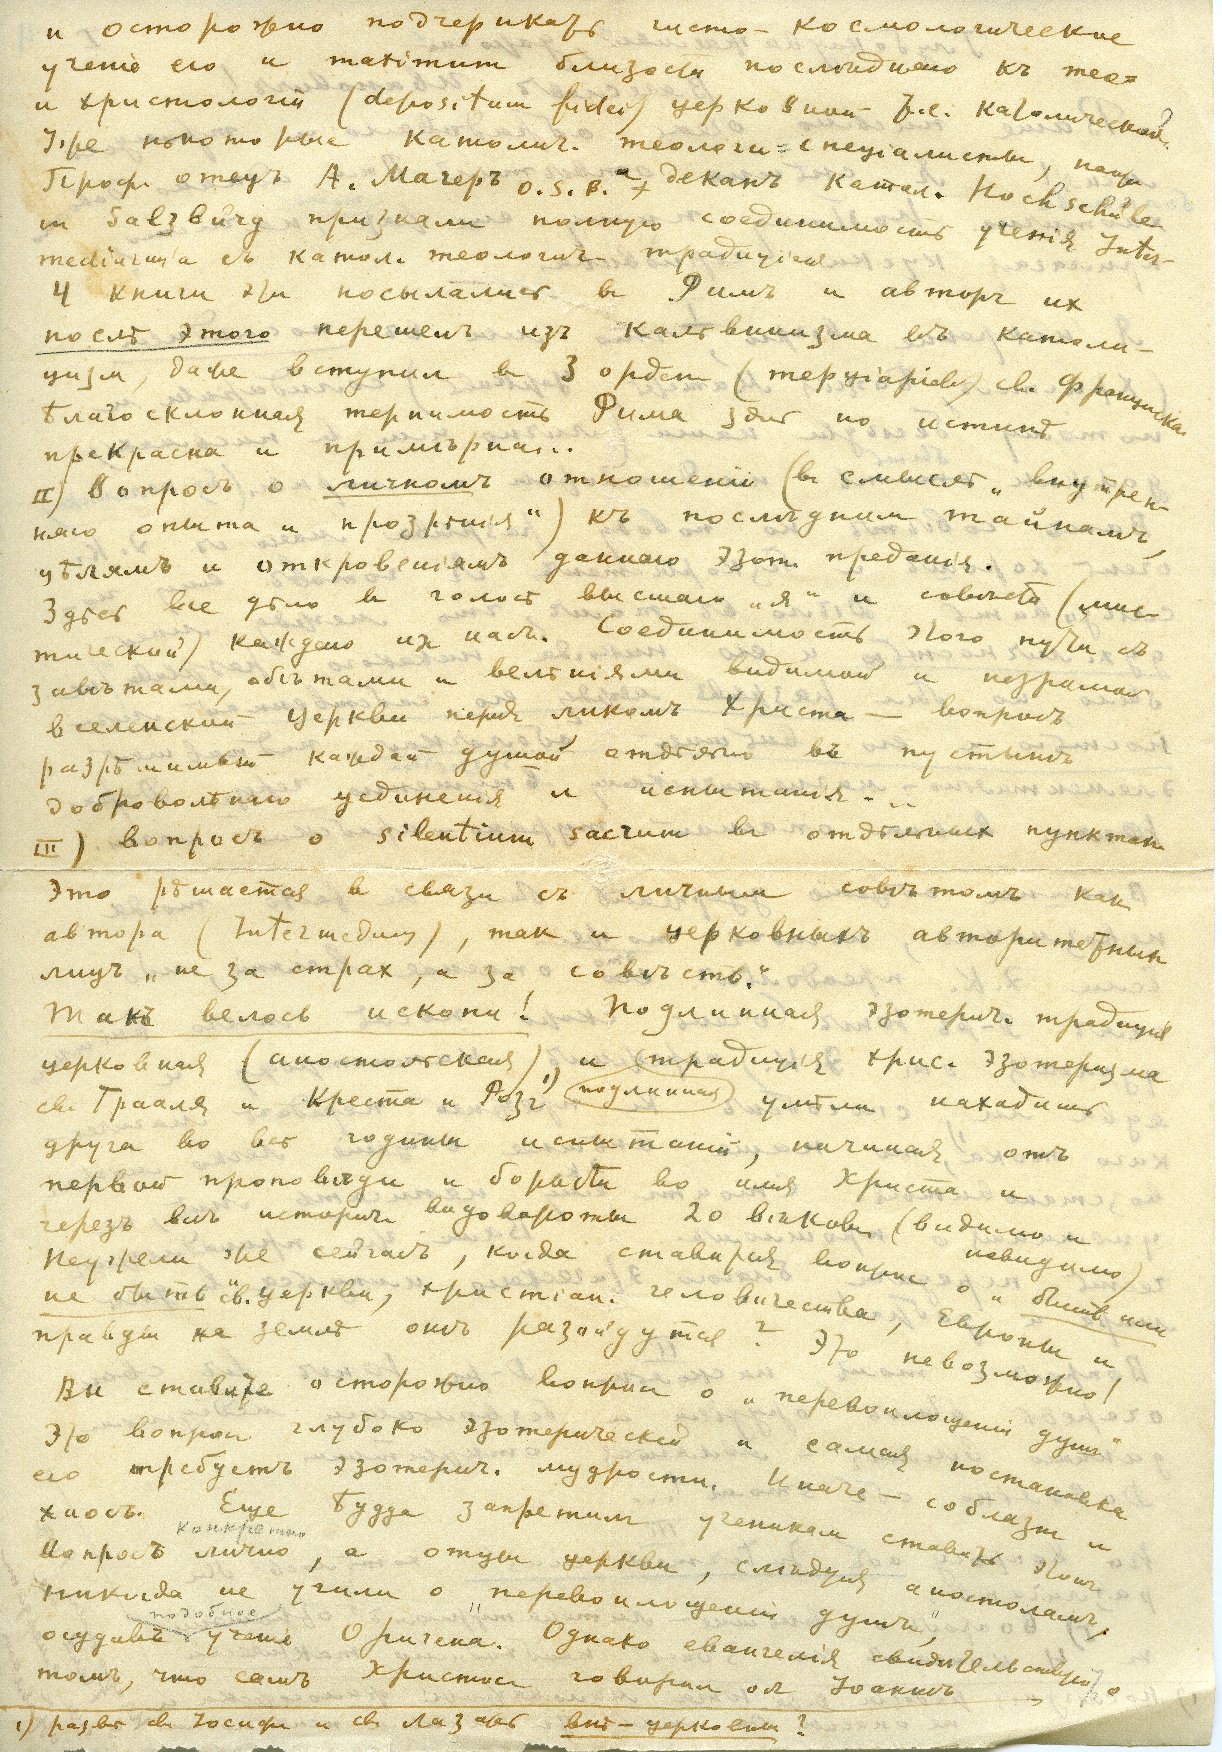 и осторожно подчеркнуть чисто-космологические
учение его и maximum близости последняго къ тео-
и христологiи (depositum fidei) церковной т.е. католической.
Уже некоторые католич. теологи-специалисты,
Проф. отецъ А. Магеръ O.S.B. деканъ катол. Hochschule
in Salzburg признали полную соединимость ученiя Inter-
mediarius'а съ катол. теологич. традицiей
4 книги эти посылались в Римъ и авторъ их
послѣ этого перешелъ изъ кальвинизма въ католи-
цизм, даже вступил в 3 орден (терцiарiев) св. Франциска.
Благосклонная терпимость Рима здѣсь по истинѣ
прекрасна и примѣрна...
II) Вопросъ о личномъ отношенiи (в смыслѣ „внутрен-
няго опыта и прозрѣнiя“) къ последним тайнамъ,
цѣлямъ и откровенiямъ даннаго эзот. преданiя.
Здѣсь все дѣло в голосѣ высшаго „я“ и совѣсти (мис-
тической) каждаго из насъ. Соединимость этого пути съ
завѣтами, обѣтами и велѣнiями видимой и незримой
вселенской Церкви перед ликомъ Христа — вопросъ
разрѣшимый каждой душой отдѣльно въ пустынѣ
добровольнаго уединенiя и испытанiя...
III) Вопросъ о silentium sacrum в отдѣльных пунктах
Это рѣшается в связи съ личным совѣтомъ как
автора (Intermedius), так и церковныхъ авторитетных
лицъ „не за страх, а за совѣсть.“
Такъ велось искони! Подлинная эзотерич. традицiя
церковная (апостольская), и традицiя хрис. эзотеризма
св. Грааля и Креста и Розы¹) (подлинная) умѣли находить
друга во всѣ годины испытанiй, начиная отъ
первой проповѣди и борьбы во имя Христа и
черезъ всѣ историч. водовороты 20 вѣков (видимо и
невидимо)
Неужели же сейчасъ, когда ставится вопрос о „быть или
не быть“ св. Церкви, христiан. человѣчества, Европы и
правды на землѣ онѣ разойдутся? Это невозможно!
Вы ставите осторожно вопрос о „перевоплощенiи душъ“
Это вопрос глубоко эзотерическiй и самая постановка
его требуетъ эзотерич. мудрости. Иначе — соблазн и
хаосъ. Еще Будда запретил ученикам ставить этот
конкретно
вопросъ лично, а отцы церкви, слѣдуя апостоламъ,
никогда не учили о „перевоплощенiи душъ“,
подобное
осудивъ ученiе Оригена. Однако евангелiя свидѣтельствуют о
томъ, что самъ Христос говорил об Iоаннѣ
¹) развѣ св. Iосиф и св. Лазарь внѣ-церковны?